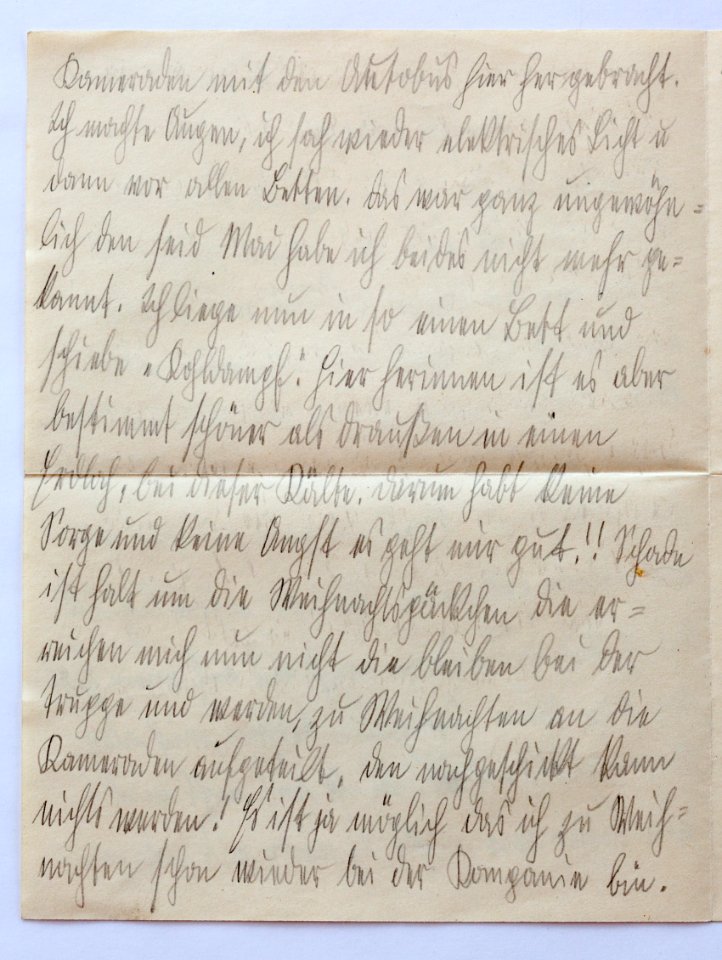 Kameraden mit den Autobus hier her gebracht.
Ich machte Augen, ich sah wieder elektrisches Licht u
dann vor allen Betten. das war ganz ungewöhn=
lich den seid Mai habe ich beides nicht mehr ge=
kannt. Ich liege nun in so einen Bett und
schiebe „Kohldampf." Hier herinnen ist es aber
bestimmt schöner als draußen in einen
Erdloch, bei dieser Kälte. darum habt keine
Sorge und keine Angst es geht mir gut.!! Schade
ist halt um die Weihnachtspäckchen die er=
reichen mich nun nicht die bleiben bei der
Truppe und werden, zu Weihnachten an die
Kameraden aufgeteilt, den nachgeschickt kann
nichts werden.! Es ist ja möglich das ich zu Weih=
nachten schon wieder bei der Kompanie bin.